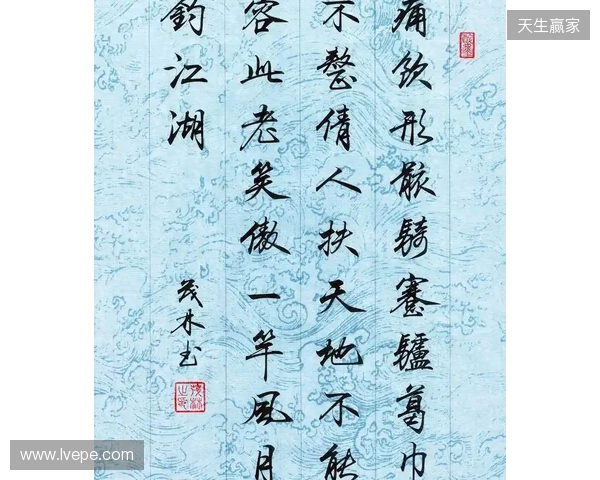 天生赢家
痛饮形骸騎蹇驢葛巾
不整倩人扶天地不能
容此老笑傲一竿風月
釣江湖
茂林书
www.lvepe.com